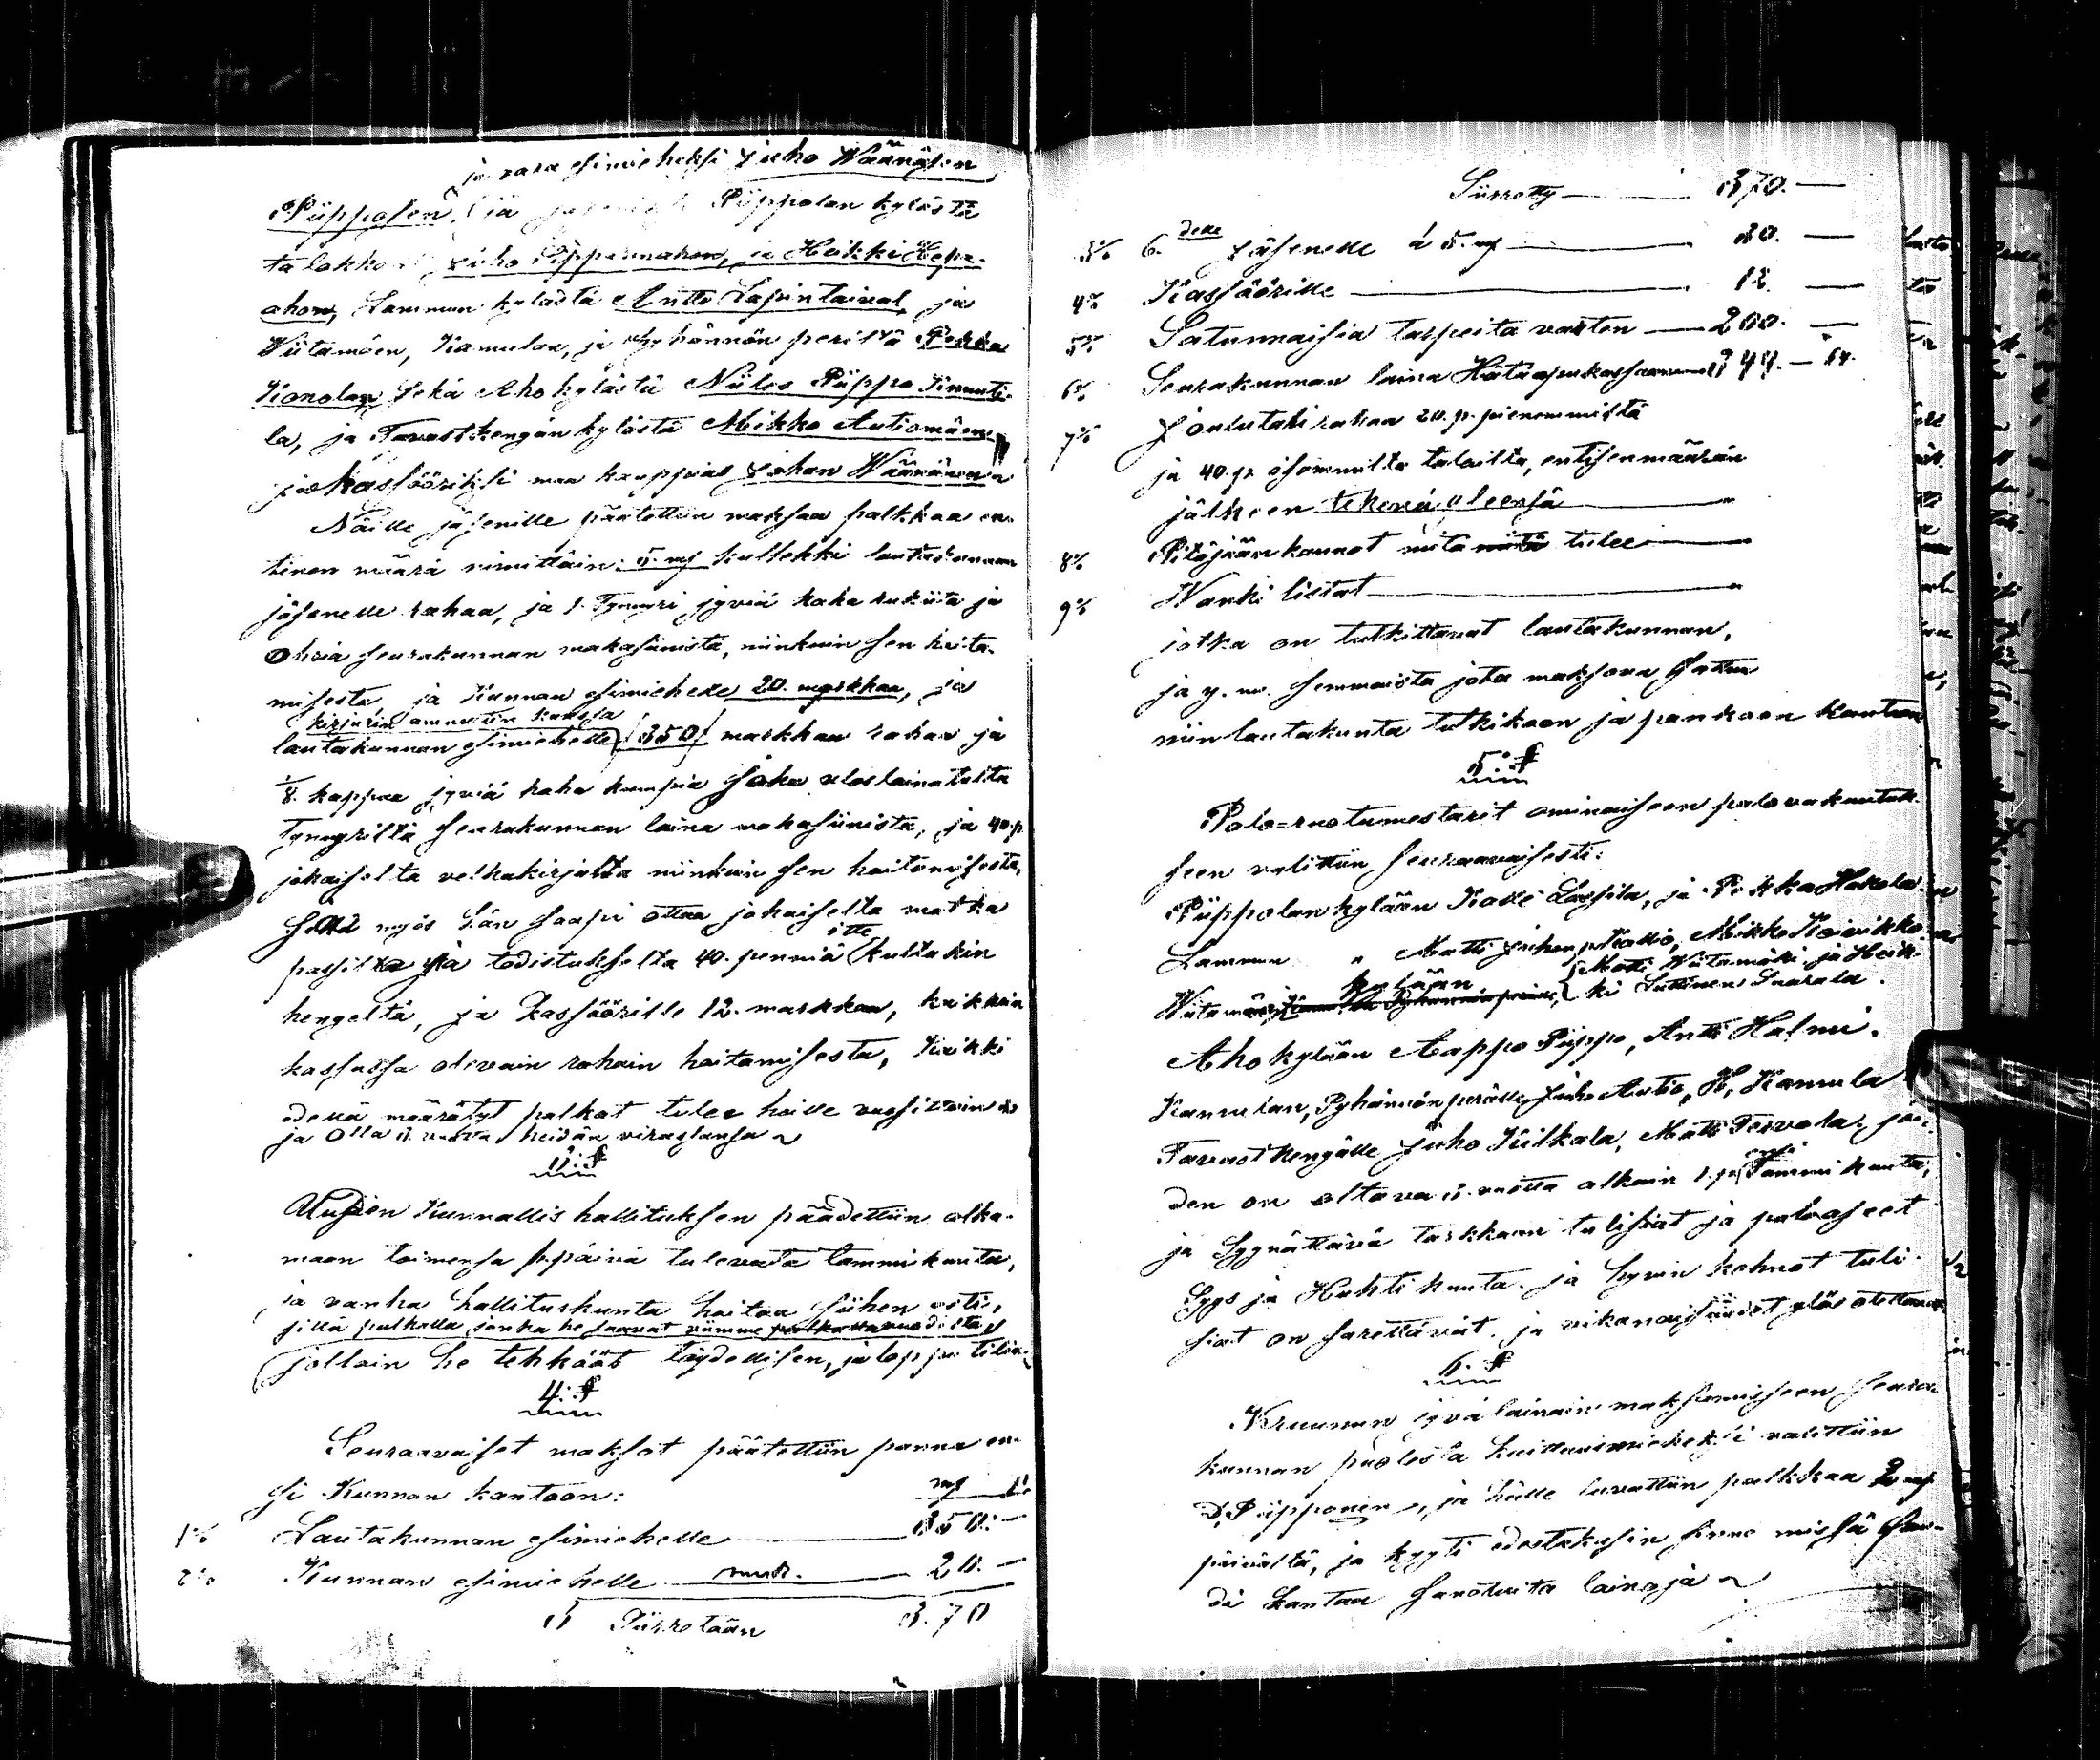 ja vara esimieheksi Juho Wäänäsen
Piipposen, ja Piippolan kylästä
talokko Juho Pippurinahon, ja Heikki Hepo-
ahon, Lammun kylästä Antti Lapintaival, ja
Wiitamäen, Kamulan, ja Pyhännön periltä Pekka
Konolan, Sekä Ahokylästä Niiles Piippo Kinnuti-
la, ja Tavastkengän kylästä Mikko Autiomäen
ja kassööriksi maa kauppias Johan Wäänänen
Näille jäsenille päätettiin maksaa palkkaa en-
tinen määrä nimittäin: 5. mf kullekki lautakunnan
jäsenelle rahaa, ja 1. Tynnyri jyviä kaha rukiita ja
Ohria seurakunnan makasiinista, niinkuin sen hoita-
misesta, ja Kunnan esimiehelle 20. markkaa, ja
kirjurin ammatin kanssa
lautakunnan esimiehelle 350 markkaa rahaa ja
1/8. kappaa jyviä kaha kumpia joka uloslainatulta
Tynnyriltä seurakunnan laina makasiinista, ja 40. p.
jokaiselta velkakirjalta niinkuin sen hoitamisesta,
Sekä myös hän saapi ottaa jokaiselta matka
itte
passilta ja todistukselta 40. penniä kultakin
hengeltä, ja kassöörille 12. markkaa, kaikkein
kassassa olevain rahain hoitamisesta, Kaikki
edellä määrätyt palkat tulee heille vuosittain
ja Olla 3. vuotta heidän virassansa
3. §
Uusien Kunnallis hallituksen päädettiin alka-
maan toimensa 1. päivä tulevata tammikuuta,
ja vanha hallituskunta hoitaa siihen asti,
sillä palkalla jonka he saavat viimme vuodelta
jollain he tehkööt täydellisen, ja loppu tilin
4. §
Seuraavaiset maksot päätettiin panna en-
si Kunnan kantoon: mf pi
1:o Lautakunnan esimiehelle 350. —
2:o Kunnan esimiehelle 20. —
Siirretään 3.70
Siirretty 370. —
3:o 6. delle Jäsenelle á 5. mf 30. —
4:o Kassöörille 12. —
5:o Satunnaisia tarpeita varten 200. —
6:o Seurakunnan laina Hätäapukassaan 344. — 64.
7:o Joulutuki rahaa 20. p. pienemmistä
ja 40. p. isommilta taloilta, entisen määrän
jälkeen tekevä yleensä
8:o Pitäjään kannot mitä tulee
9:o Wanki listat
jotka on tutkittavat lautakunnan,
ja y. m. semmoista jota maksoa sattuu
niin lautakunta tutkikoon ja pankoon kantoon
5. §
Palo=ruotumestarit ominaiseen palovakuutuk-
seen valittiin seuraavaisesti:
Piippolan kylään Kalle Lassila, ja Pekka Hakola
Lammun " Matti Juhonp. Kallio, Mikko Koivikko
kylään Matti Wiitamäki ja Heik-
Wiitamäen ki Suttinen Saarala.
Ahokylään Aappo Piippo, Antti Halmi.
Kamulan, Pyhännön perälle Juho Autio, H. Kamula
Tavastkengälle Juho Kilkala, Matti Tervola, joi-
ensi
den on oltava 3. vuotta alkain 1. p. Tammi kuuta,
ja Syynättävä tarkkaan tulisiat ja paloaseet
Syys ja Huhti kuuta. ja hyvin kohnot tuli-
siat on särettävät, ja vikanaisuudet ylös otettavat
6. §
Kruunun jyvä lainain maksamiseen seura-
kunnan puolesta kuittausmieheksi valittiin
D. Piipponen, ja hälle luvattiin palkkaa 2 mf
päivältä, ja kyyti edestakasin sinne missä saa-
di kantaa sanotuita lainoja